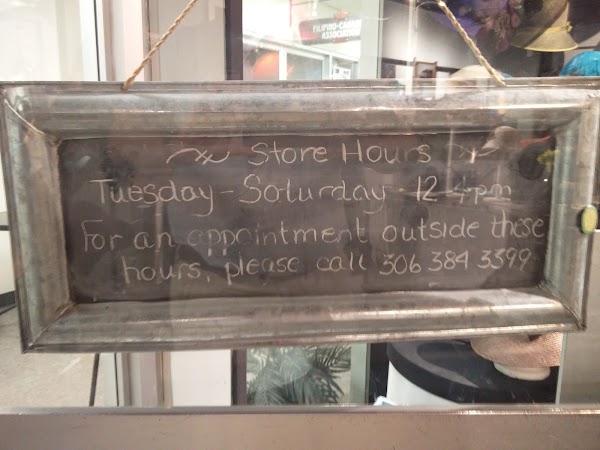 FILIPINO-CANAD
ASSOCIATION
Store Hours
Tuesday - Saturday 12-4pm
For an appointment outside those
hours, please call 306 384 3399